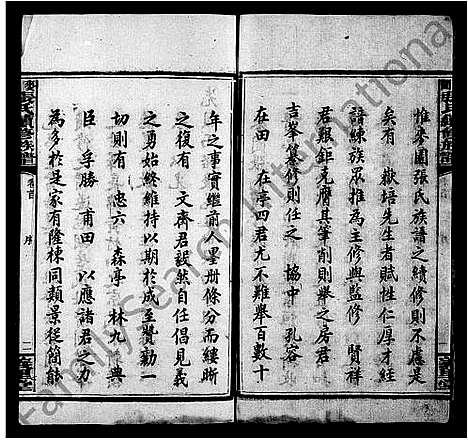 惟麥園張氏族譜之續修則不慮是
矣有 嶽培先生者賦性仁厚才經
諳練族眾推為主修與監修 賢祥
君艱鉅克膺其筆削則舉之房君
吉峯纂修則任之 協中 孔容
在田 在亭四君尤不難舉百數十
年之事實繼前人墨卌條分而縷晰
之復有 文齊君毅然自任倡見義
之勇始終維持以期於成至贊勷一
切則有 忠六 森亭 林九 典
臣 孚勝 甫田 以應諸君之力
為多於是家有隆棟同類景從簡能
卷首 序 二
FamilySearch International